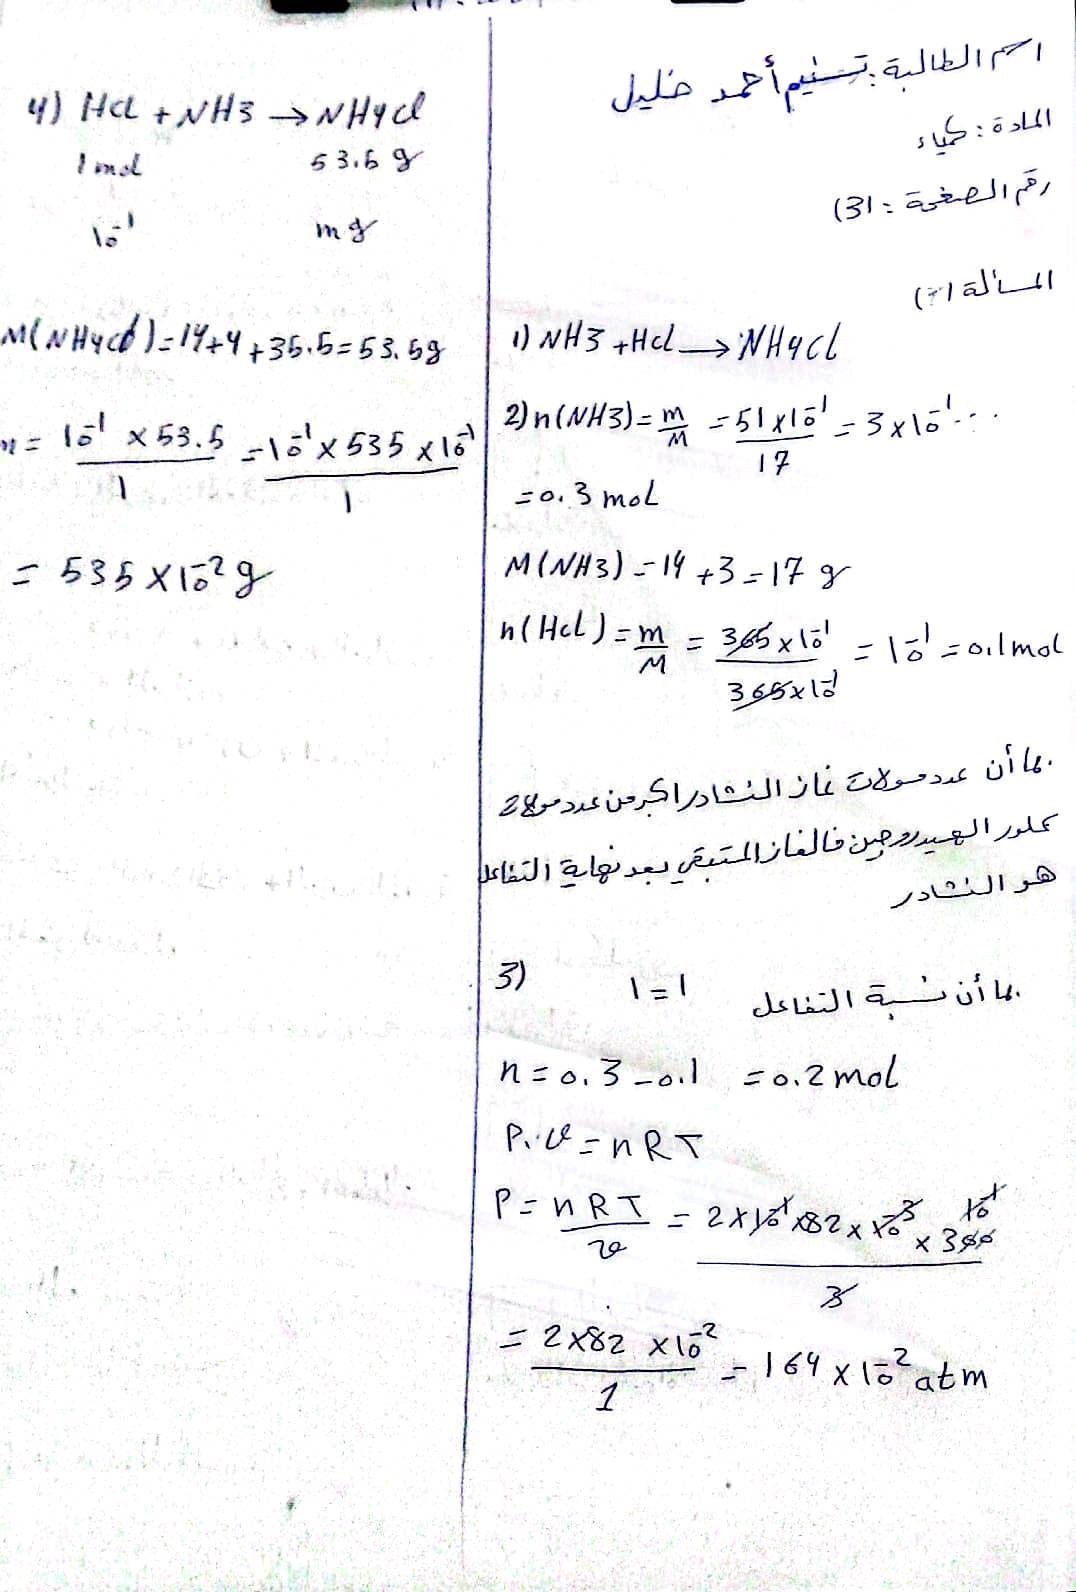 اسم الطالبة: تسنيم أحمد خليل
المادة: كمياء
رقم الصفحة: 31)
المسألة
1) NH3 + Hcl → NH4CL
2) n(NH3) = m/M = 51 x 10^-1 / 17 = 3 x 10^-1 ...
= 0.3 moL
M(NH3) = 14 + 3 = 17 g
n(HcL) = m/M = 365 x 10^-1 / 365 x 10^-1 = 10^-1 = 0.1 mol
بما أن عدد مولات غاز النشادر اكبر من عدد مولات
كلور الهيدروجين فالغاز المتبقي بعد نهاية التفاعل
هو النشادر
3) بما أن نسبة التفاعل 1 = 1
n = 0.3 - 0.1 = 0.2 moL
P.v = n R T
P = n R T / v = 2 x 10^-1 x 82 x 10^-3 x 300 / 3
= 2 x 82 x 10^-2 / 1 = 164 x 10^-2 atm
4) HcL + NH3 → NH4cl
1 mol 53.5 g
10^-1 m g
M(NH4cl) = 14 + 4 + 35.5 = 53.5 g
m = 10^-1 x 53.5 / 1 = 10^-1 x 535 x 10^-1 / 1
= 535 x 10^-2 g